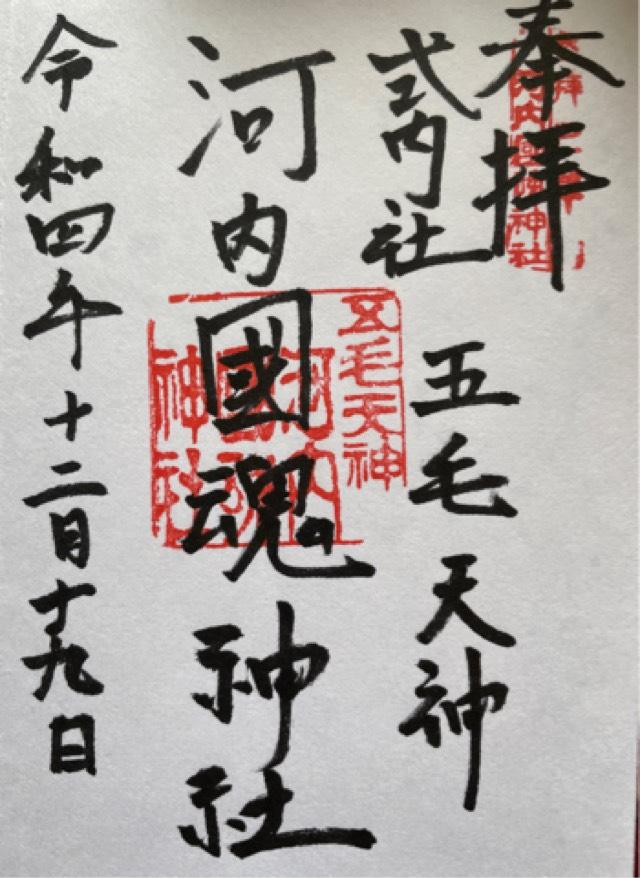 奉拝
式内社 五毛天神
河内國魂神社
令和四年十二月十九日
五毛天神
河内國魂神社